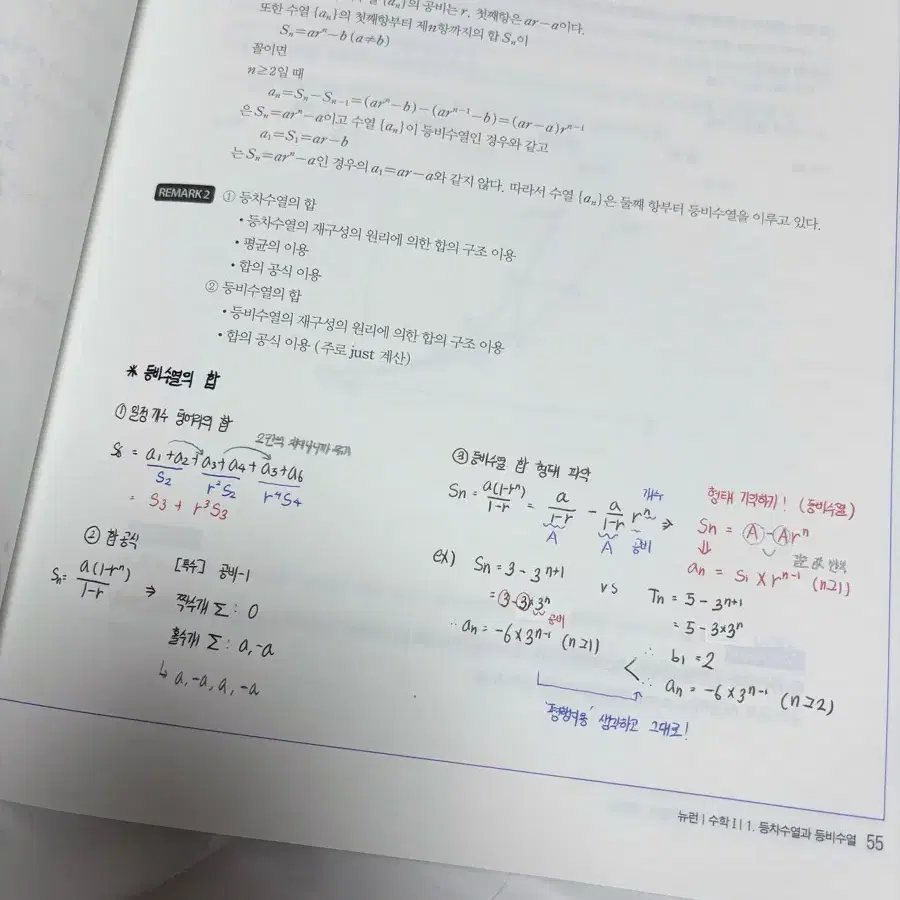 {aₙ}의 공비는 r, 첫째항은 ar－a이다.
또한 수열 {aₙ}의 첫째항부터 제n항까지의 합 Sₙ이
Sₙ=arⁿ－b (a≠b)
꼴이면
n≥2일 때
aₙ=Sₙ－Sₙ₋₁=(arⁿ－b)－(arⁿ⁻¹－b)=(ar－a)rⁿ⁻¹
은 Sₙ=arⁿ－a이고 수열 {aₙ}이 등비수열인 경우와 같고
a₁=S₁=ar－b
는 Sₙ=arⁿ－a인 경우의 a₁=ar－a와 같지 않다. 따라서 수열 {aₙ}은 둘째 항부터 등비수열을 이루고 있다.
REMARK 2 ① 등차수열의 합
• 등차수열의 재구성의 원리에 의한 합의 구조 이용
• 평균의 이용
• 합의 공식 이용
② 등비수열의 합
• 등비수열의 재구성의 원리에 의한 합의 구조 이용
• 합의 공식 이용 (주로 just 계산)
* 등비수열의 합
① 일정 개수 덩어리의 합
S₆ = a₁+a₂+a₃+a₄+a₅+a₆
S₂ r²S₂ r⁴S₄
= S₃ + r³S₃
② 합 공식
Sₙ= a(1-rⁿ)/1-r ⇒
[특수] 공비-1
짝수개 Σ : 0
홀수개 Σ : a, -a
↳ a, -a, a, -a
③ 등비수열 합 형태 파악
Sₙ = a(1-rⁿ)/1-r = a/1-r - a/1-r rⁿ ⇒
개수
A A 공비
형태 기억하기! (등비수열)
Sₙ = A - Arⁿ
⇓
같은 값 반복
aₙ = S₁ × rⁿ⁻¹ (n≥1)
ex) Sₙ = 3 - 3ⁿ⁺¹
= 3-3×3ⁿ
공비
∴ aₙ = -6×3ⁿ⁻¹ (n≥1)
vs
Tₙ = 5 - 3ⁿ⁺¹
= 5 - 3×3ⁿ
∴ b₁ = 2
∴ aₙ = -6×3ⁿ⁻¹ (n≥2)
생각하고 그대로!
뉴런 | 수학 I | 1. 등차수열과 등비수열 55